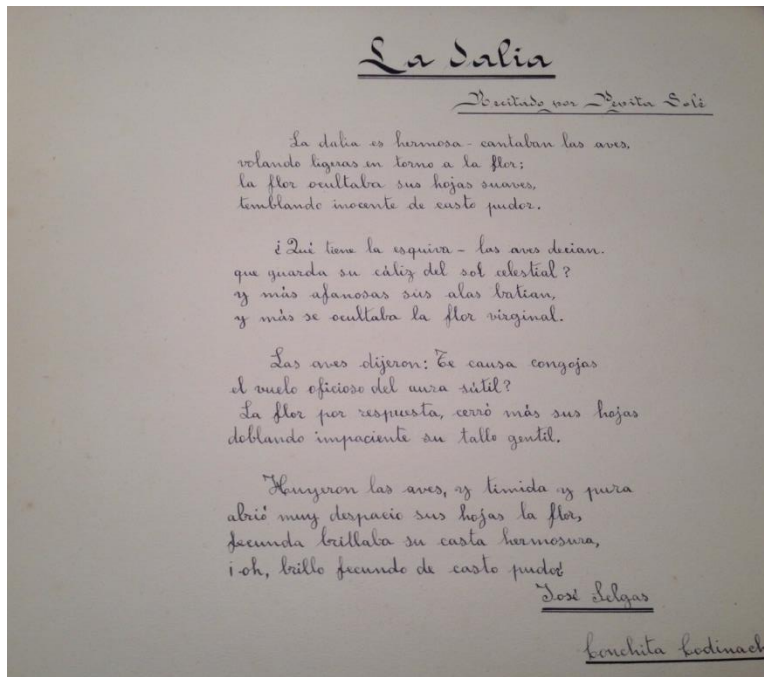 La Dalia
Recitado por Pepita Solé
La dalia es hermosa - cantaban las aves,
volando ligeras en torno a la flor;
la flor ocultaba sus hojas suaves,
temblando inocente de casto pudor.
¿Qué tiene la esquiva - las aves decian.
que guarda su cáliz del sol celestial?
y más afanosas sus alas batian,
y más se ocultaba la flor virginal.
Las aves dijeron: Te causa congojas
el vuelo oficioso del aura sútil?
La flor por respuesta, cerró más sus hojas
doblando impaciente su tallo gentil.
Huyeron las aves, y timida y pura
abrió muy despacio sus hojas la flor,
fecunda brillaba su casta hermosura,
¡oh, brillo fecundo de casto pudor!
José Selgas
Conchita Codinach